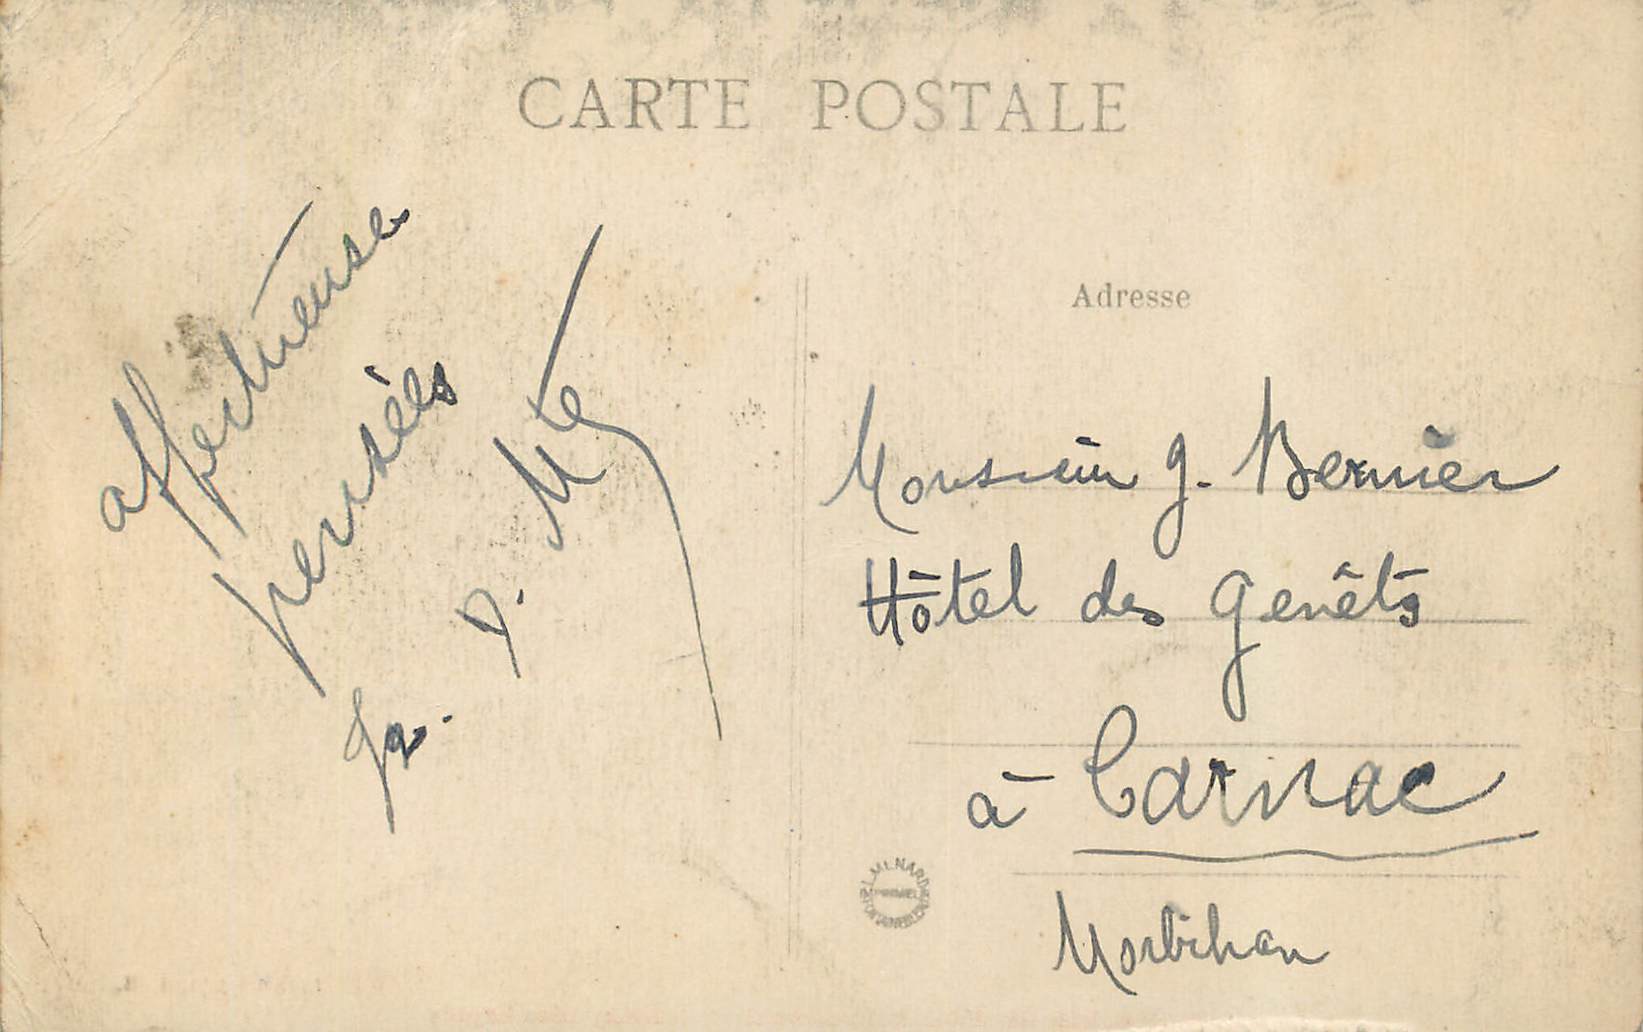 CARTE POSTALE
affectueuse
pensées
Adresse
Monsieur G. Bernier
Hôtel des Genêts
à Carnac
Morbihan
L. MÉNARD